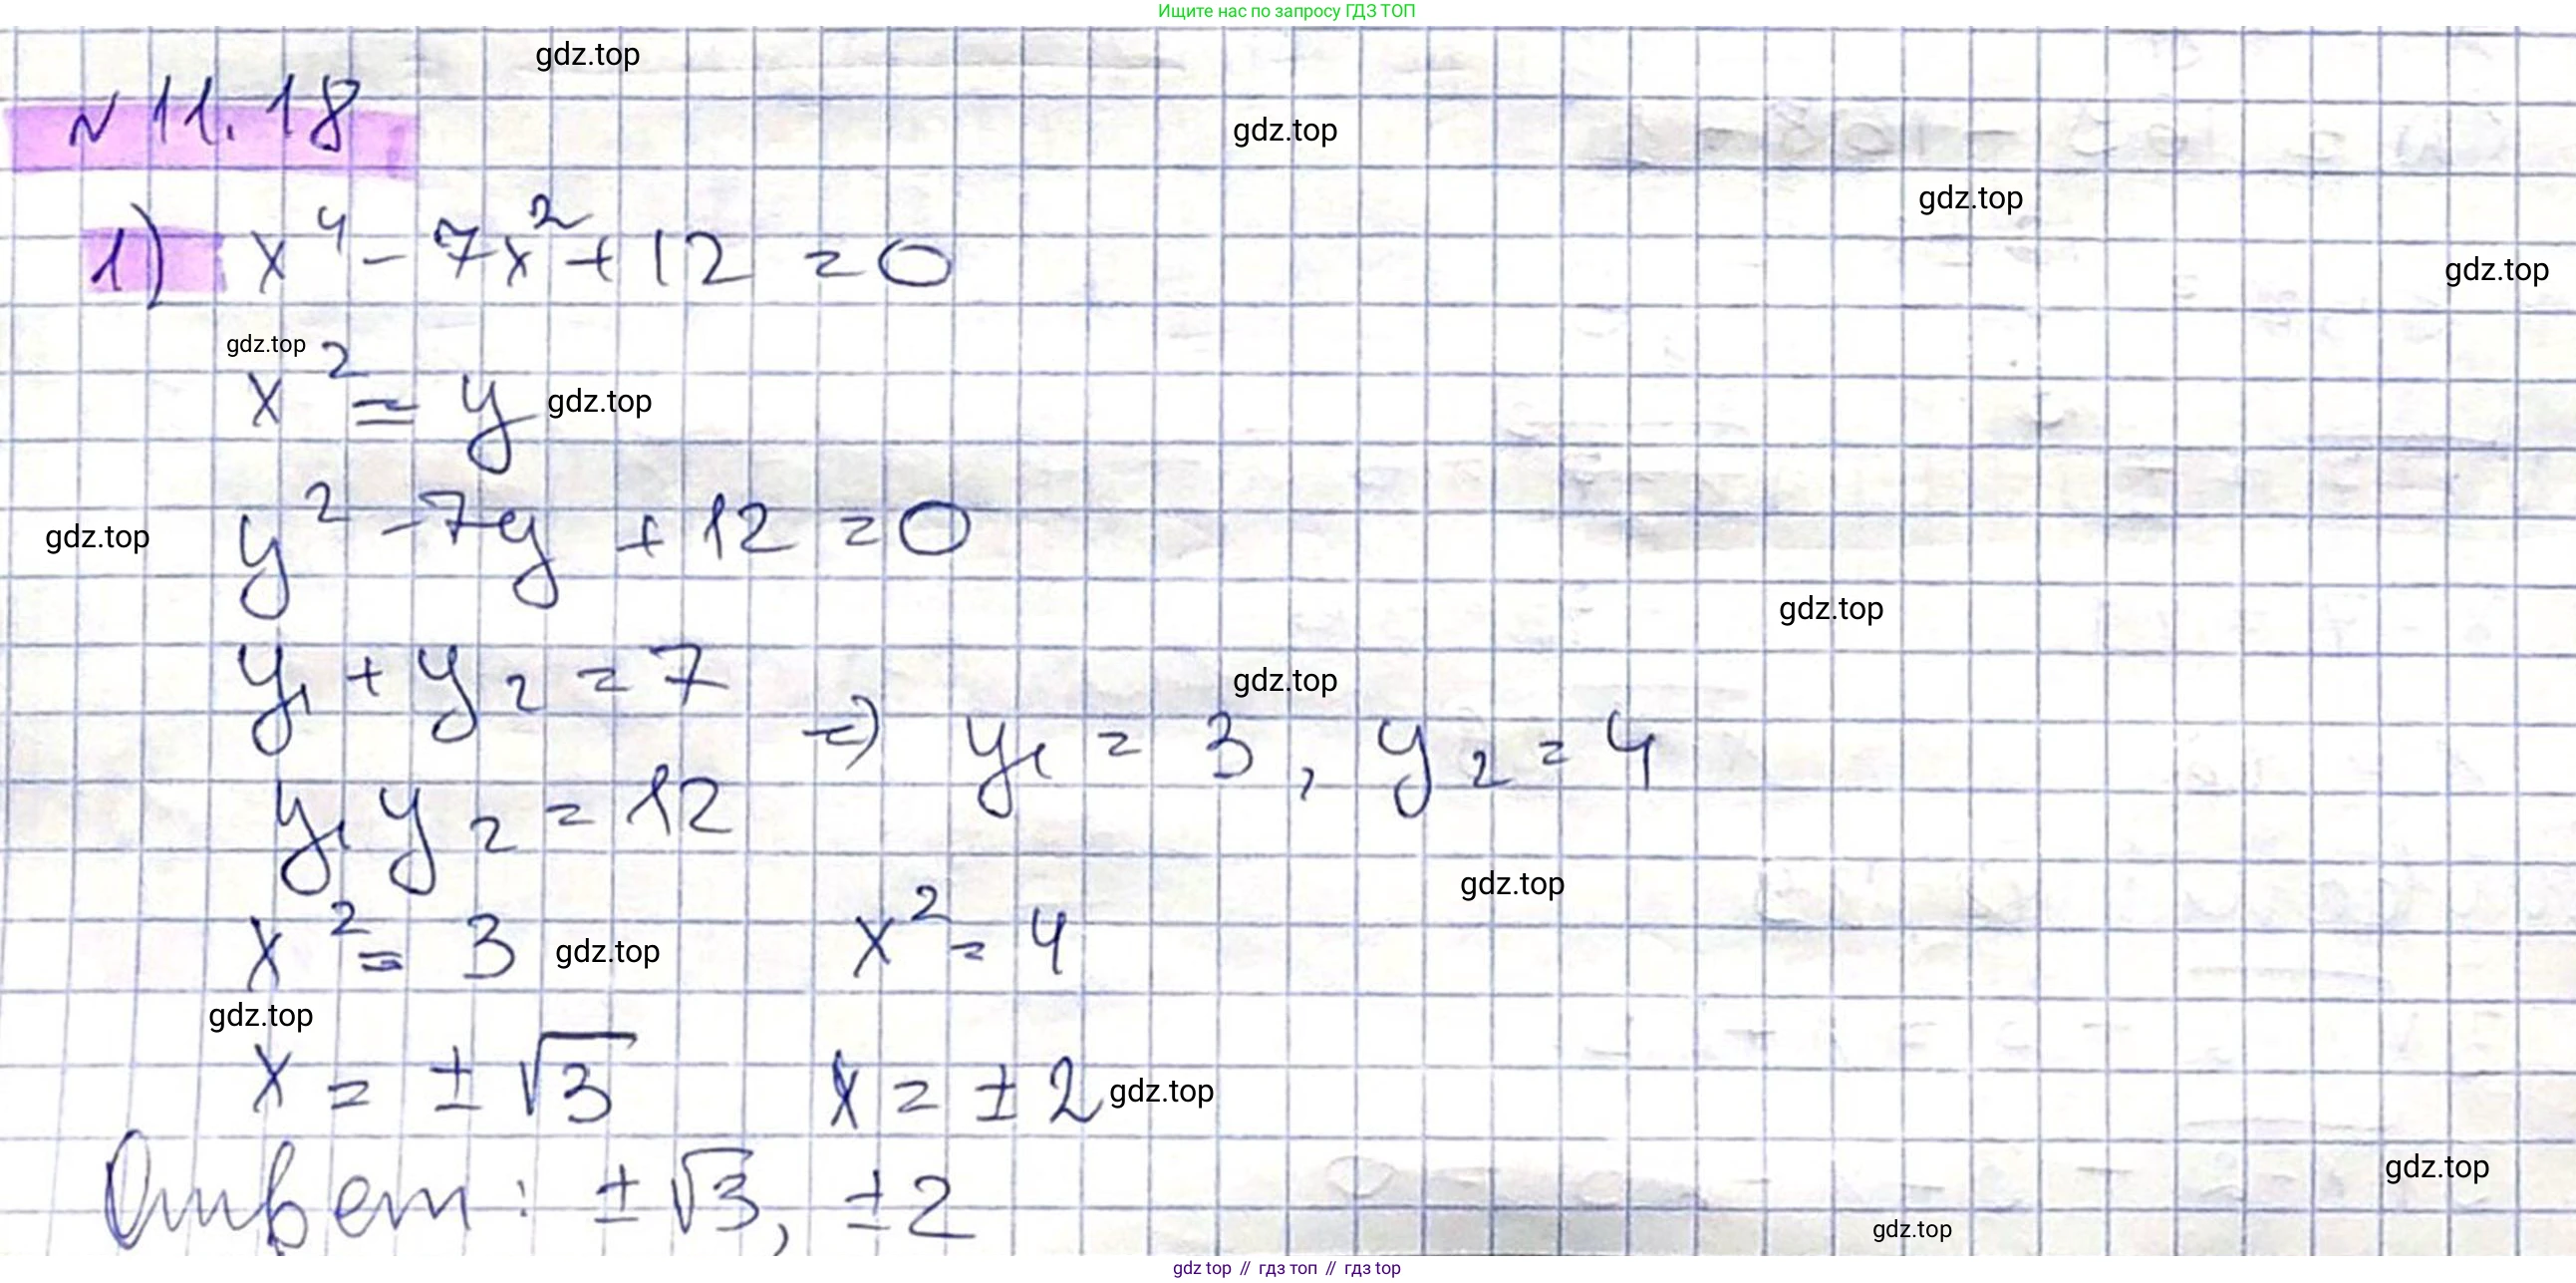 Ищите нас по запросу ГДЗ ТОП
gdz.top
№ 11.18
gdz.top
gdz.top
1) x⁴ - 7x² + 12 = 0
gdz.top
gdz.top
x² = y
gdz.top
y² - 7y + 12 = 0
gdz.top
gdz.top
y₁ + y₂ = 7
gdz.top
⇒ y₁ = 3, y₂ = 4
y₁ y₂ = 12
gdz.top
x² = 3 gdz.top x² = 4
gdz.top
x = ± √3 x = ± 2 gdz.top
gdz.top
Ответ: ± √3, ± 2
gdz.top
gdz top // гдз топ // гдз top